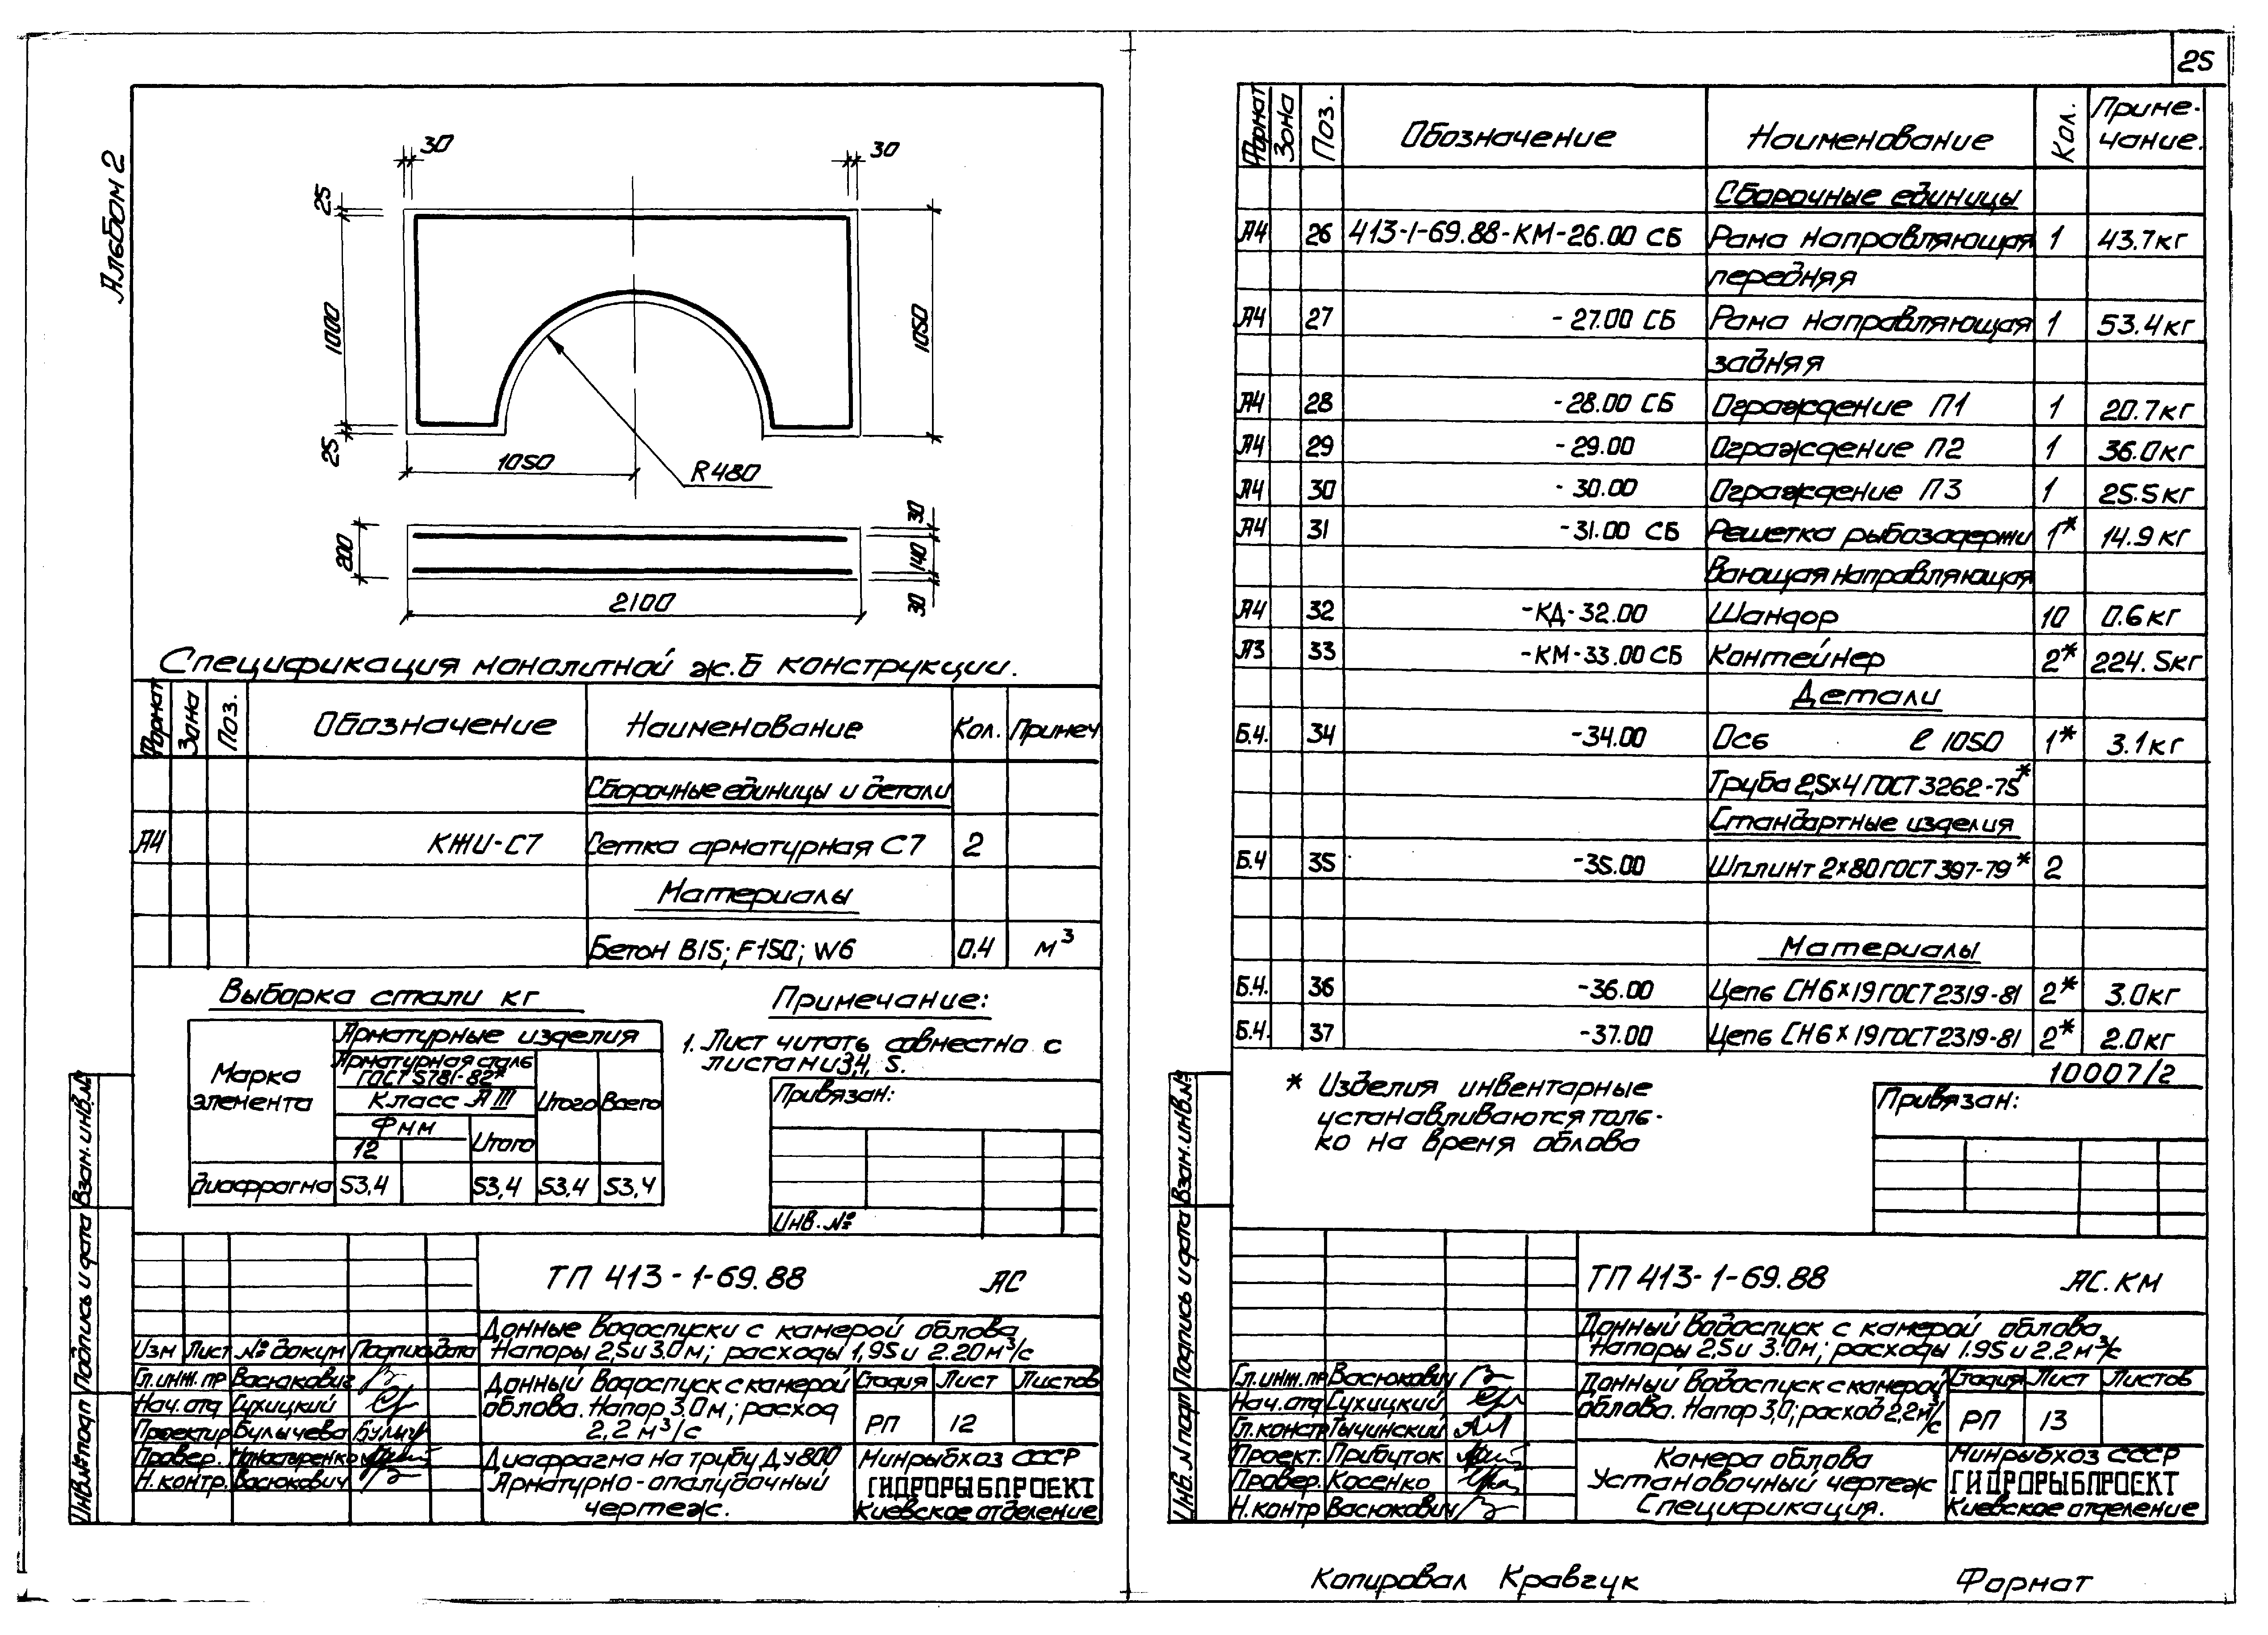 25
Альбом 2
30
30
25
1000
25
1050
1050
R480
200
30
140
30
2100
Спецификация монолитной ж.б конструкции.
Формат Зона Поз. Обозначение Наименование Кол. Примеч
Сборочные единицы и детали
А4 КЖИ-С7 Сетка арматурная С7 2
Материалы
Бетон В15; F150; W6 0.4 м³
Выборка стали кг
Марка элемента
Арматурные изделия
Арматурная сталь
ГОСТ 5781-82*
Класс А III
Итого Всего
Ф мм
12 Итого
Диафрагма 53,4 53,4 53,4 53,4
Примечание:
1. Лист читать совместно с
листами 3,4, 5.
Привязан:
Инв. №
Взам. инв. №
Подпись и дата
Инв. № подл
ТП 413-1-69.88 АС
Донные водоспуски с камерой облова
Напоры 2,5 и 3.0м; расходы 1,95 и 2.20м³/с
Изм Лист № докум Подпись Дата
Гл. инж. пр Васюкович
Нач. отд Сухицкий
Проектир Булычева
Провер.
Н. контр. Васюкович
Донный водоспуск с камерой
облова. Напор 3,0м; расход
2,2 м³/с
Стадия Лист Листов
РП 12
Диафрагма на трубу Ду800
Арматурно-опалубочный
чертеж.
Минрыбхоз СССР
ГИДРОРЫБПРОЕКТ
Киевское отделение
Формат Зона Поз. Обозначение Наименование Кол. Приме-
чание.
Сборочные единицы
А4 26 413-1-69.88-КМ-26.00 СБ Рама направляющая 1 43.7кг
передняя
А4 27 -27.00 СБ Рама направляющая 1 53.4кг
задняя
А4 28 -28.00 СБ Ограждение П1 1 20.7кг
А4 29 -29.00 Ограждение П2 1 36.0кг
А4 30 -30.00 Ограждение П3 1 25.5кг
А4 31 -31.00 СБ Решетка рыбозадержи 1* 14.9кг
вающая направляющая
А4 32 -КД-32.00 Шандор 10 0.6кг
А3 33 -КМ-33.00 СБ Контейнер 2* 224.5кг
Детали
Б.4. 34 -34.00 Ось ℓ 1050 1* 3.1кг
Труба 2,5х4 ГОСТ 3262-75*
Стандартные изделия
Б.4 35 -35.00 Шплинт 2х80 ГОСТ 397-79* 2
Материалы
Б.4. 36 -36.00 Цепь СН6х19 ГОСТ 2319-81 2* 3.0кг
Б.4. 37 -37.00 Цепь СН6х19 ГОСТ 2319-81 2* 2.0кг
10007/2
* Изделия инвентарные
устанавливаются толь-
ко на время облова
Привязан:
Взам. инв. №
Подпись и дата
Инв. № подл
ТП 413-1-69.88 АС.КМ
Донный водоспуск с камерой облова
Напоры 2,5 и 3.0м; расходы 1.95 и 2.2м³/с
Гл. инж. пр Васюкович
Нач. отд Сухицкий
Гл. констр Тычинский
Проект. Прибуток
Провер. Косенко
Н. контр Васюкович
Донный водоспуск с камерой
облова. Напор 3,0; расход 2,2м³/с
Стадия Лист Листов
РП 13
Камера облова
Установочный чертеж
Спецификация.
Минрыбхоз СССР
ГИДРОРЫБПРОЕКТ
Киевское отделение
Копировал Кравчук Формат